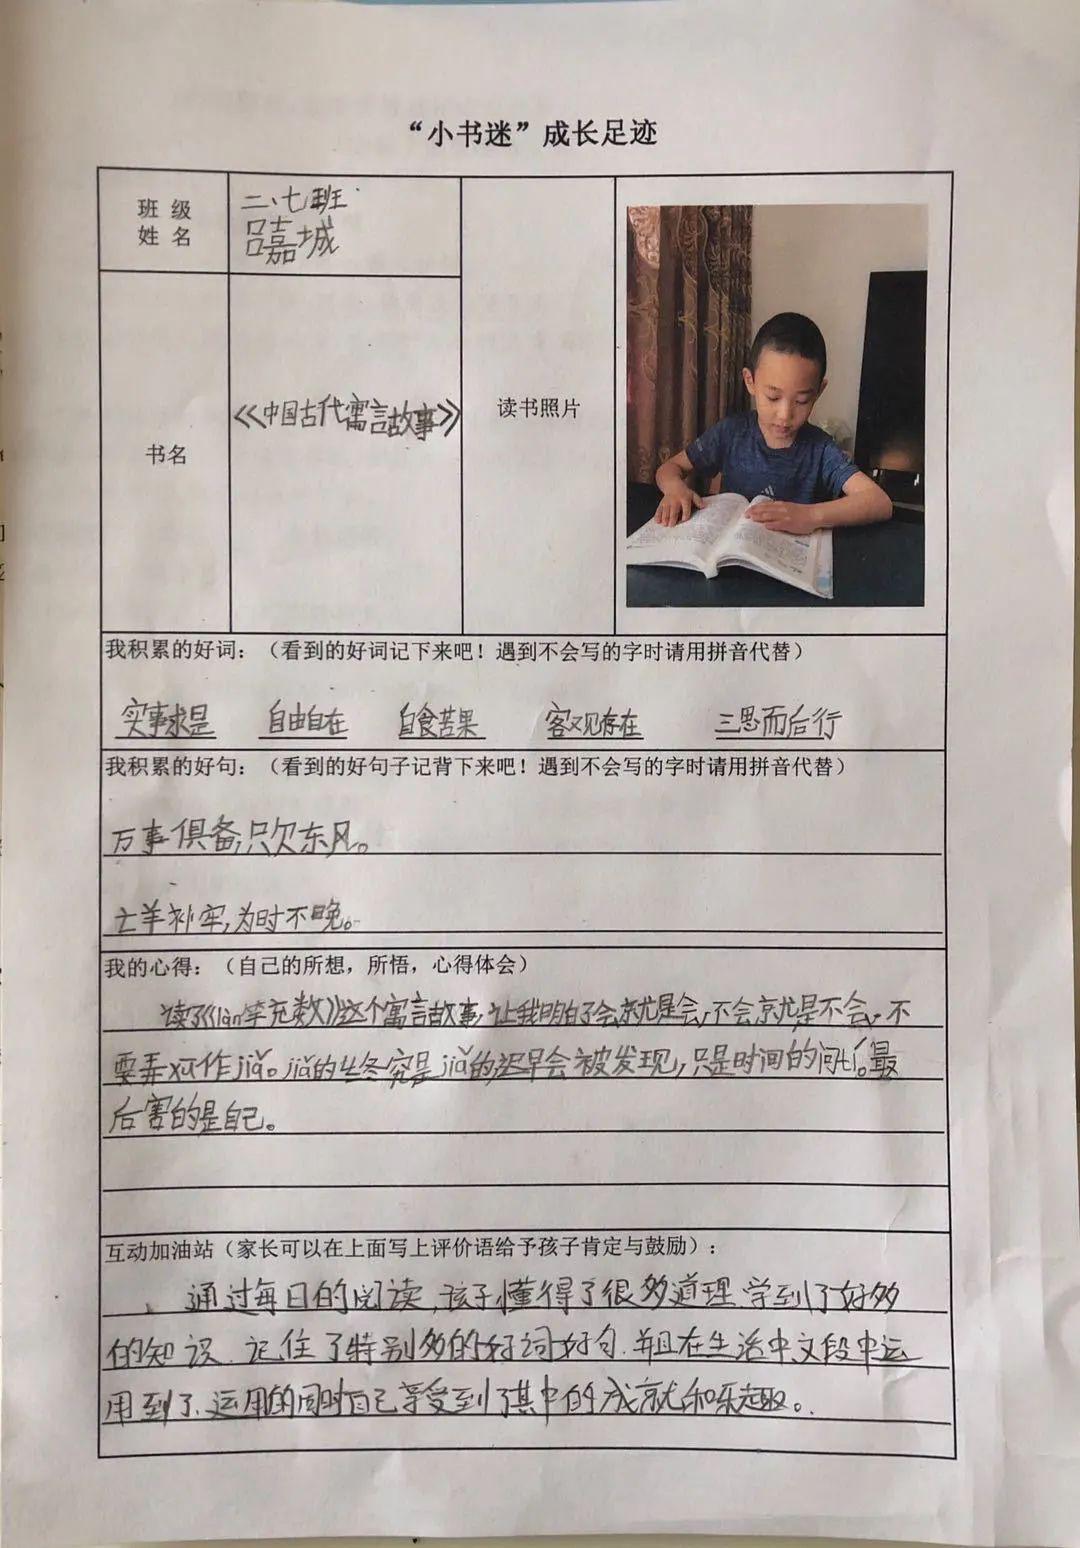 “小书迷”成长足迹
班 级
姓 名
二、七班
吕嘉城
书名
《中国古代寓言故事》
读书照片
我积累的好词：（看到的好词记下来吧！遇到不会写的字时请用拼音代替）
实事求是 自由自在 自食苦果 客观存在 三思而后行
我积累的好句：（看到的好句子记背下来吧！遇到不会写的字时请用拼音代替）
万事俱备，只欠东风。
亡羊补牢，为时不晚。
我的心得：（自己的所想，所悟，心得体会）
读了《làn竽充数》这个寓言故事，让我明白了会就是会，不会就是不会，不
要弄xū作jiǎ。jiǎ的终究是jiǎ的，迟早会被发现，只是时间的问tí。最
后害的是自己。
互动加油站（家长可以在上面写上评价语给予孩子肯定与鼓励）：
、通过每日的阅读，孩子懂得了很多道理.学到了好多
的知识.记住了特别多的好词好句.并且在生活中文段中运
用到了.运用的同时自己享受到了其中的成就和乐趣。